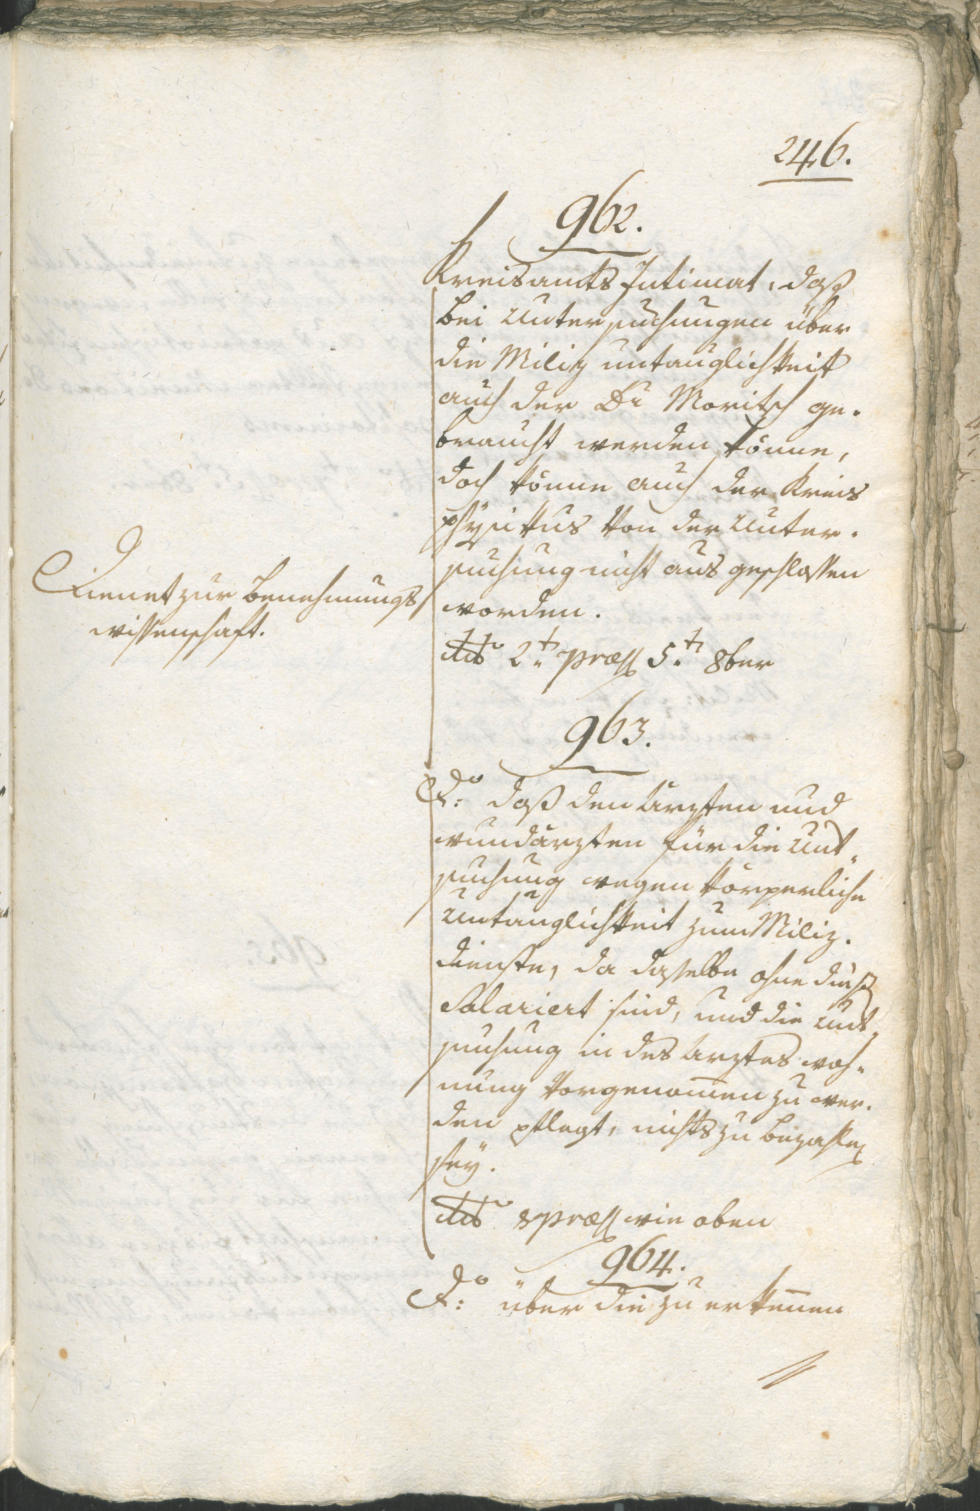 246.
962.
Kreisamts Intimat, daß
bei Untersuchungen über
die Miliz untauglichkeit
auch der Dr Moritsch ge-
braucht werden könne,
doch könne auch der Kreis
physikus von der Unter-
suchung nicht ausgeschlossen
werden.
Dienet zur Benehmungs
wissenschaft.
dto 2t. præs 5.t 8ber
963.
do: daß den Ärzten und
wundärzten für die Unt
suchung wegen körperliche
Untauglichkeit zum Miliz-
dienste, da dieselbe ohne dieß
Salariert sind, und die Unt
suchung in des Arztes woh-
nung vorgenom̄en zu wer-
den pflegt, nichts zu bezahlen
sey.
dto & præs wie oben
964.
do: über die zu erken̄en